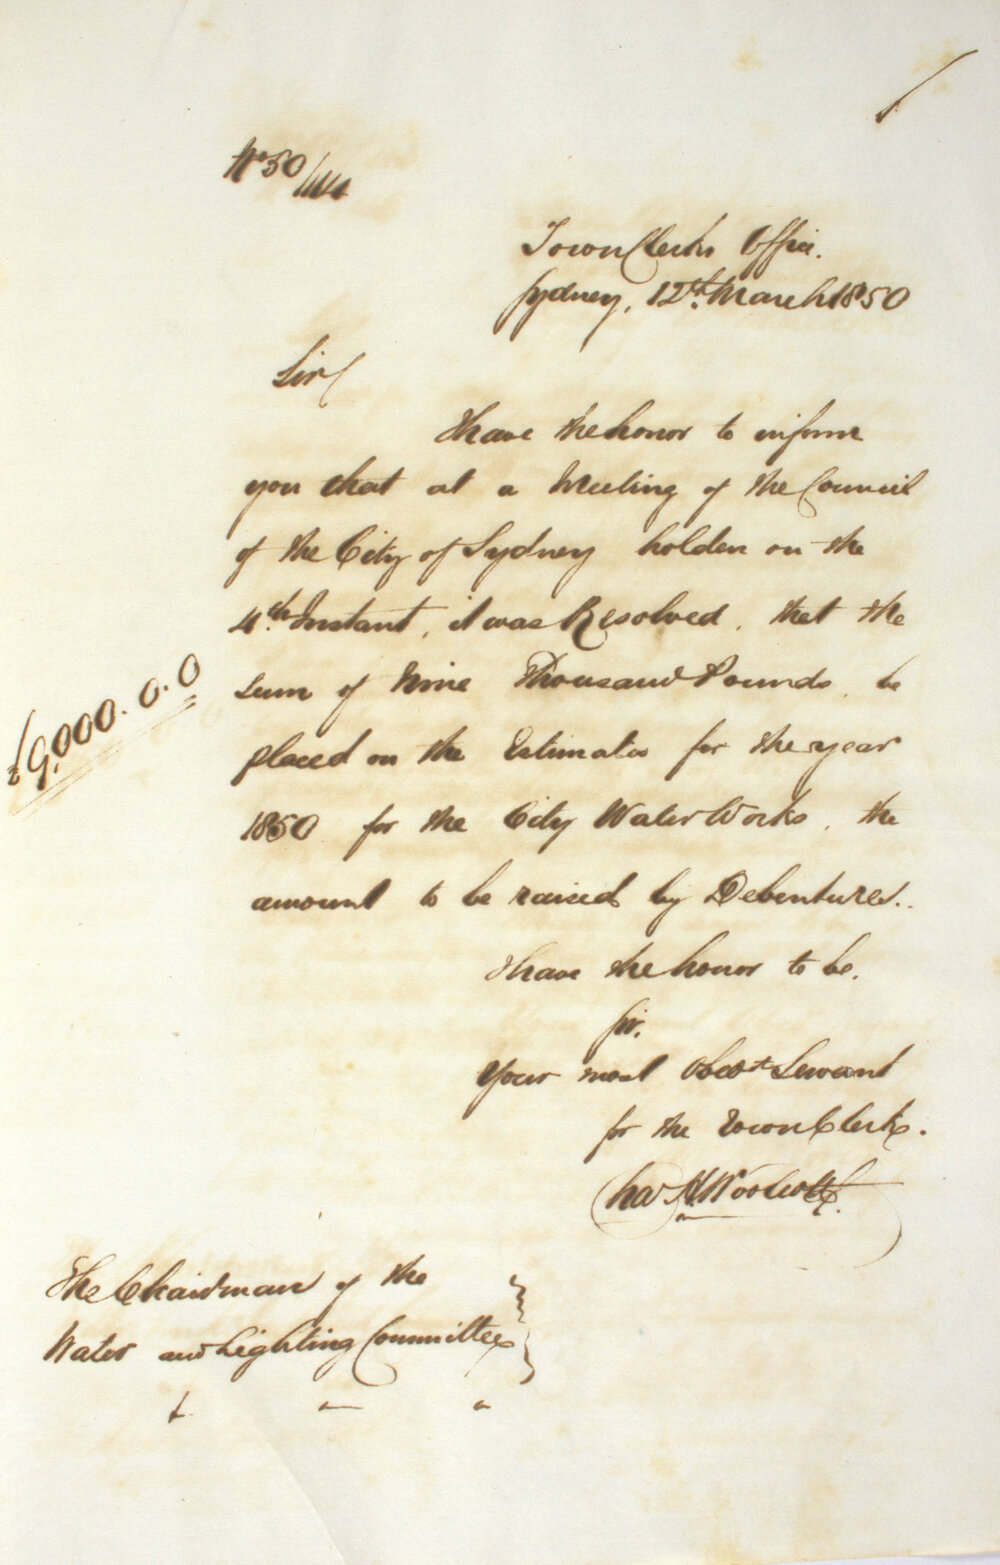 No. 50/
Town Clerks Office.
Sydney, 12th. March 1850
Sir
I have the honor to inform
you that at a Meeting of the Council
of the City of Sydney holden on the
4th. Instant, it was Resolved, that the
sum of Nine Thousand Pounds, be
£9,000.0.0
placed on the Estimates for the year
1850 for the City Water Works, the
amount to be raised by Debentures.
I have the honor to be.
Sir.
Your most Obedt Servant
for the Town Clerk.
Chas H Woolcott.
The Chairman of the
Water and Lighting Committee